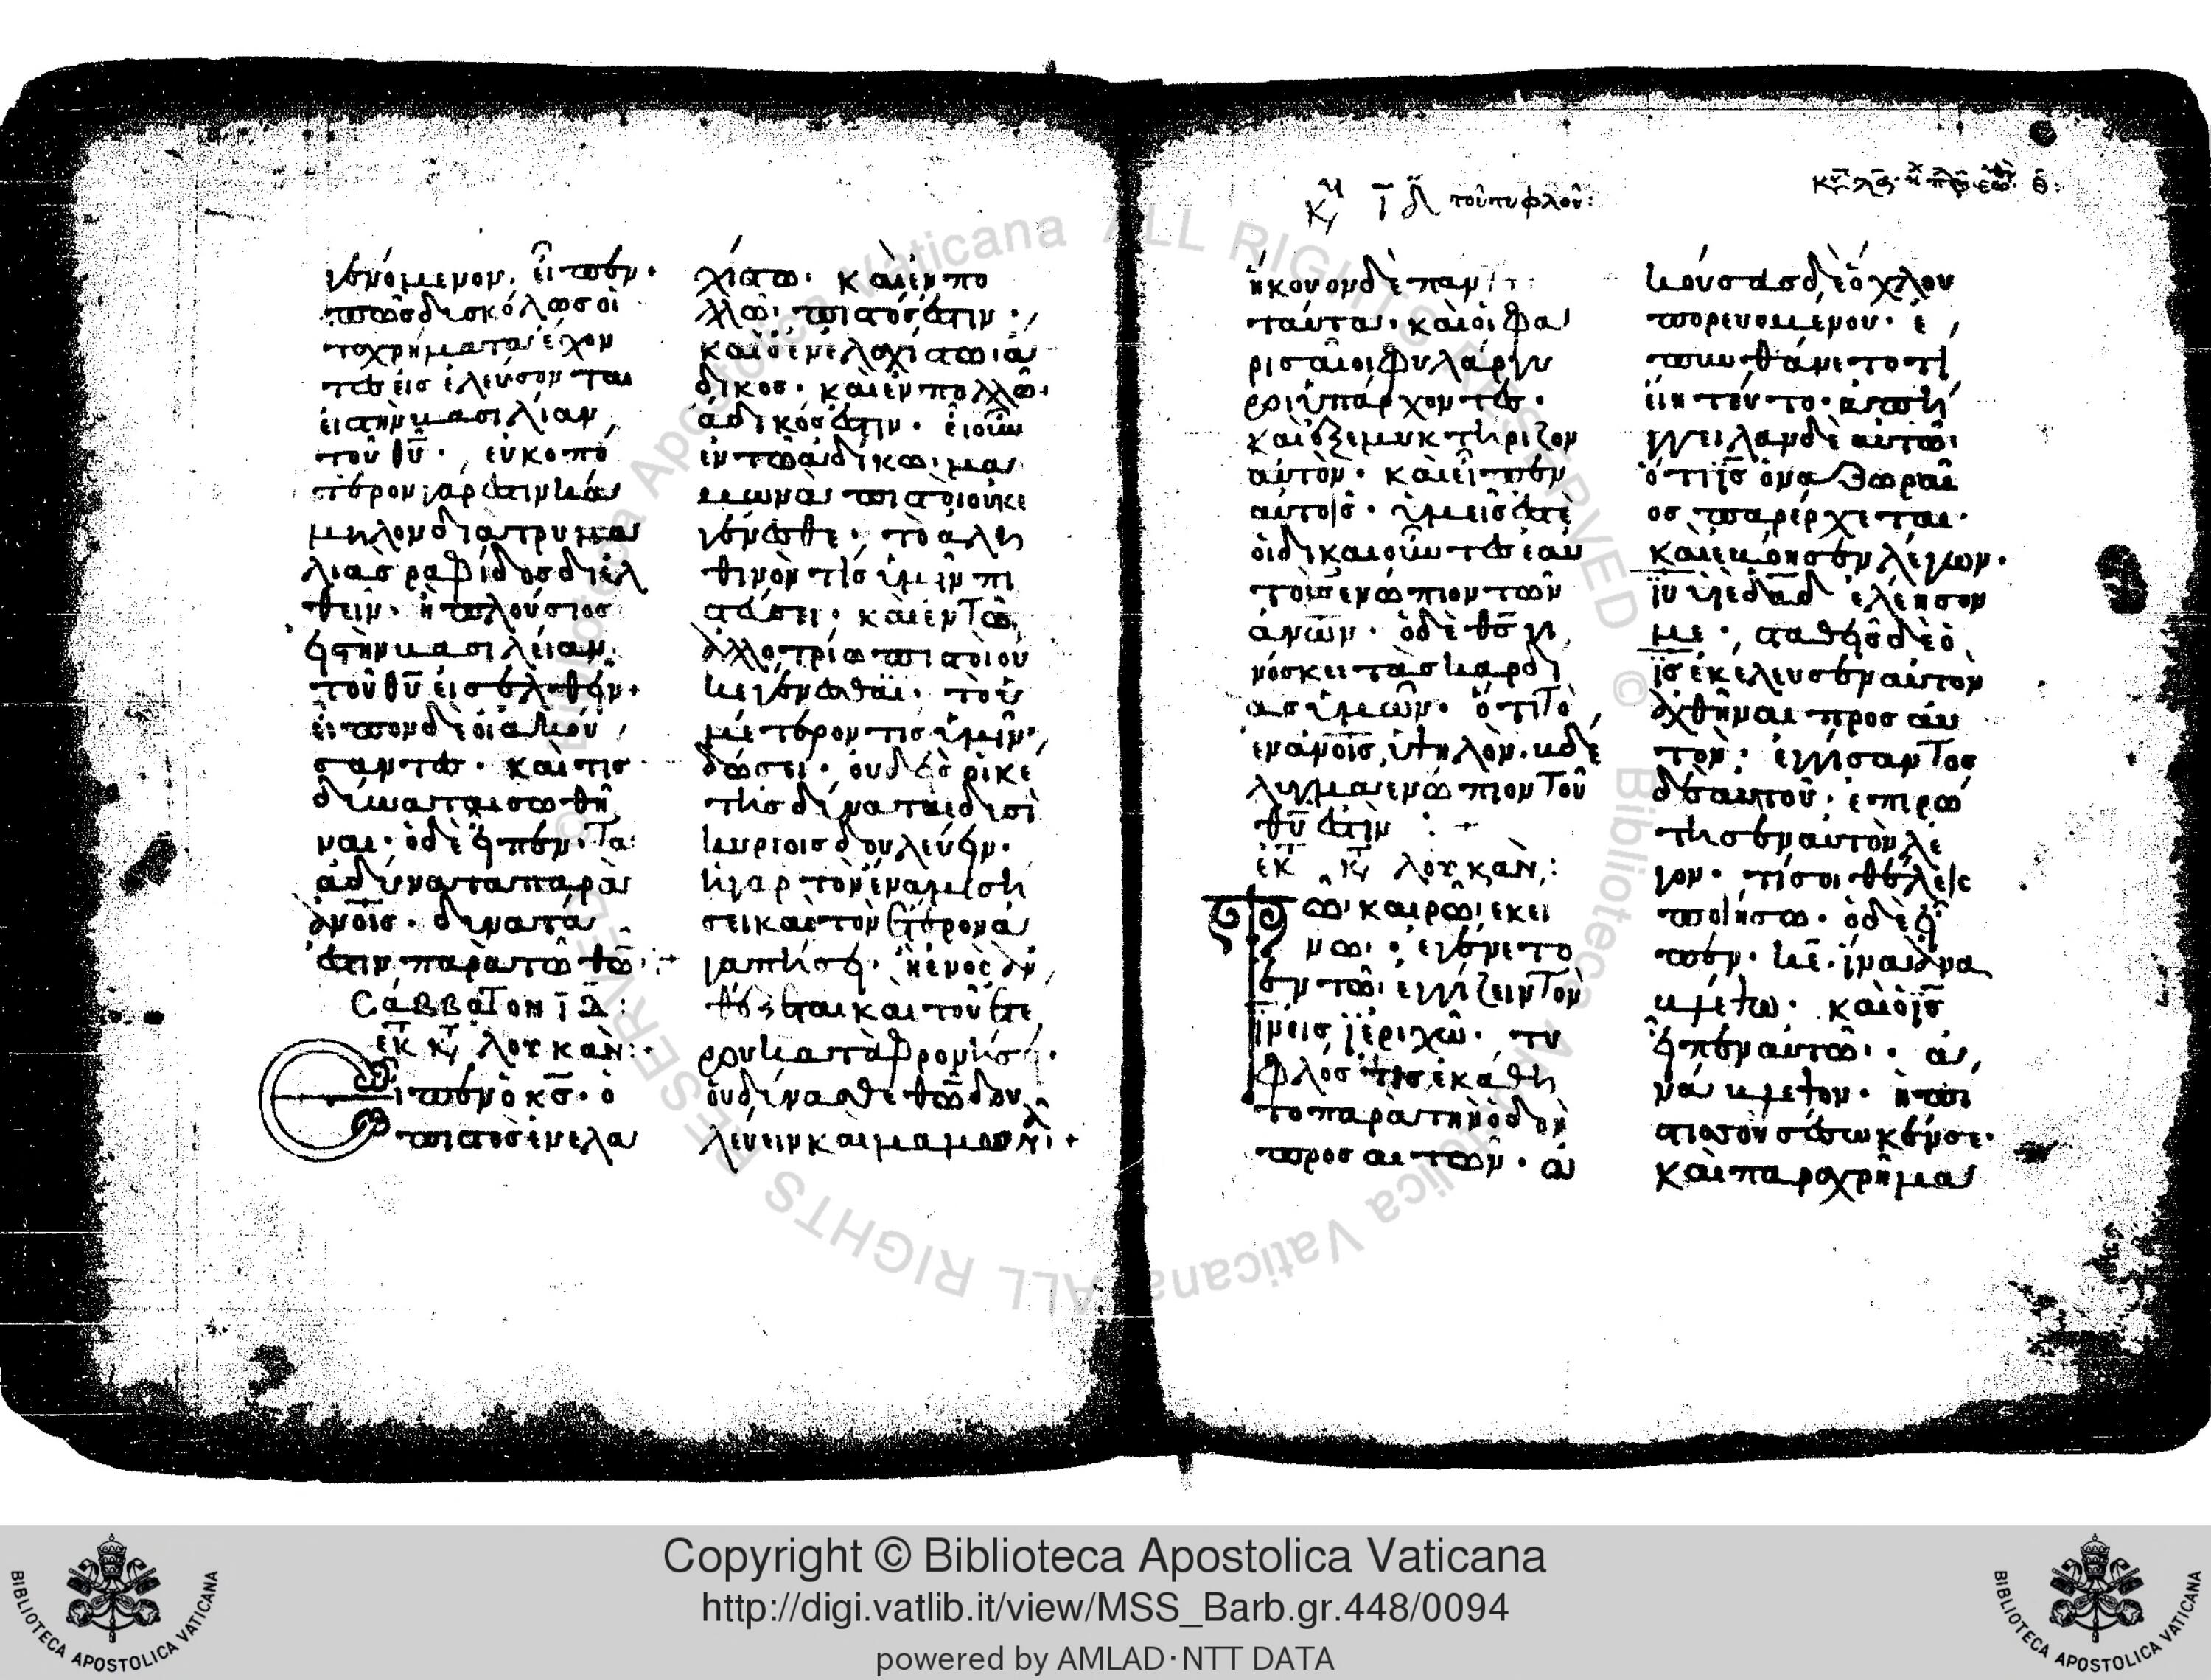 γενόμενον· εἶπεν·
πῶς δυσκόλωσ οἱ
το χρήματα ἔχον
τες εἰσελεύσονται
εἰς τὴν βασιλίαν
τοῦ θ̅υ̅· εὐκοπό
τερον γαρ ἐστιν κά
μηλον δια τρυμα
λιασ ραφίδοσ διελ
θεῖν· ἢ πλούσιοσ
εἰς τὴν βασιλείαν
τοῦ θ̅υ̅ εἰσελθεῖν+
εἶπον δὲ οἱ ἀκού
σαντες· καὶ τίσ
δύναται σωθῆ
ναι· ὁ δὲ εἶπεν· τα
ἀδύνατα παρὰ
ἀ̅ν̅ο̅ι̅σ· δυνατά
ἐστιν παρὰ τῶ θ̅ω̅:+
Σάββατον ι̅α̅:
ἐκ τ κτ λουκὰν:·
Εἶπεν ὁ κ̅σ̅· ὁ
πιστὸσ ἐν ἐλα
χίστω· καὶ ἐν πο
λλῶ· πιστόσ ἐστιν·
καὶ ὁ ἐν ἐλαχίστω ἄ
δικοσ· καὶ ἐν πολλῶ·
ἄδικόσ ἐστιν· εἰ οὖν
ἐν τῶ ἀδίκω μα
μωνα πιστοι οὐκ ε
γένεσθε· τὸ ἀλη
θινὸν τίσ ὑμῖν πι
στεύσει· καὶ ἐν τῶ
ἀλλοτρίω πιστοι ου
κ εγένεσθαι· τὸ ὑ
μέτερον τίσ ὑμῖν
δώσει· οὐδεὶσ οἰκέ
τησ δύναται δυσὶ
κυρίοισ δουλεύειν·
ἢ γαρ τὸν ἕνα μισή
σει καὶ τὸν ἕτερον ἀ
γαπήσει· ἢ ἑνὸς ἀν
θέξεται καὶ τοῦ ἑτέ
ρου καταφρονήσει·
οὐ δύνασθε θ̅ω̅ δου
λεύειν καὶ μαμωνᾶ+
τοῦ τυφλοῦ:
ἤκουον δὲ παν
ταῦτα· καὶ οἱ φα
ρισαῖοι φυλάργυ
ροι ὑπάρχοντες·
καὶ ἐξεμυκτήριζον
αὐτὸν· καὶ εἶπεν
αὐτοῖσ· ὑμεῖσ ἐστὲ
οἱ δικαιοῦντες ἑαυ
τοὺσ ἐνώπιον τῶν
ἀ̅ν̅ω̅ν· ὁ δὲ θ̅σ̅ γι
νόσκει τὰσ καρδί
ασ ὑμῶν· ὅτι τὸ
ἐν ἀ̅ν̅ο̅ι̅σ ὑψηλὸν· βδέ
λυγμα ἐνώπιον τοῦ
θ̅υ̅ ἐστὶν :+
ἐκ τ κτ λουκὰν:
Τῶ καιρῶ ἐκεί
νω· ἐγένετο
ἐν τῶ ἐγγίζειν τὸν
ι̅ν̅ εισ ἰεριχώ· τυ
φλόσ τισ ἐκάθη
το παρὰ τὴν ὁδὸν
προσαιτῶν· ἀ
κούσασ δὲ ὄχλου
πορευομένου· ἐ
πυνθάνετο τί
εἴη τοῦτο· ἀπήγ
γειλαν δὲ αὐτῶ
ὅτι ι̅σ̅ ὁ ναζωραῖ
οσ παρέρχεται·
καὶ ἐβόησεν λέγων·
ι̅υ̅ υἱὲ δ̅α̅δ̅ ἐλέησόν
με· σταθεὶσ δὲ ὁ
ι̅σ̅ ἐκέλευσεν αὐτὸν
ἀχθῆναι προσ αὐ
τὸν· ἐγγίσαντοσ
δὲ αὐτοῦ· ἐπιρώ
τησεν αὐτὸν λέ
γον· τί σοι θέλεις
ποιήσω· ὁ δὲ εἶ
πεν· κ̅ε̅· ἵνα ἀνα
βλέψω· καὶ ὁ ι̅σ̅
εἶπεν αὐτῶ· ἀ
νάβλεψον· ἡ πί
στισ σου σέσωκέν σε·
καὶ παραχρῆμα
Copyright © Biblioteca Apostolica Vaticana
http://digi.vatlib.it/view/MSS_Barb.gr.448/0094
powered by AMLAD·NTT DATA
BIBLIOTECA APOSTOLICA VATICANA
BIBLIOTECA APOSTOLICA VATICANA